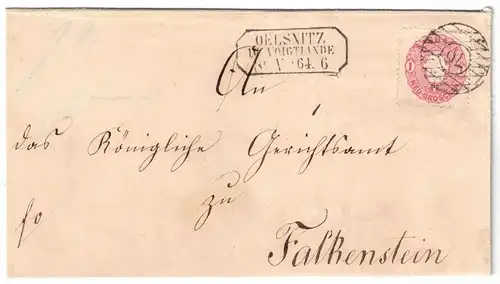 OELSNITZ
IM VOIGTLANDE
V 64. 6
An
das Königliche Gerichtsamt
zu
fo
Falkenstein